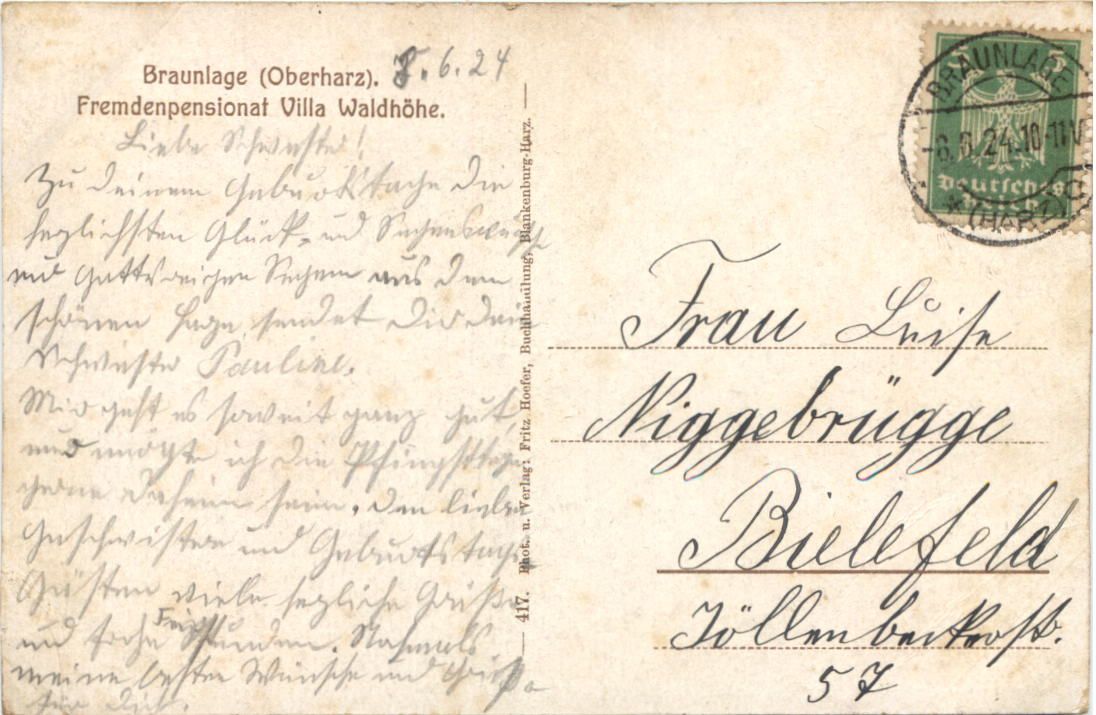 Braunlage (Oberharz). 8.6.24
Fremdenpensionat Villa Waldhöhe.
Liebe Schwester!
Zu deinem Geburtstage die
herzlichsten Glück- und Segenswünsche
und Gottesreichen Segen aus dem
schönen Harze sendet Dir Deine
Schwester Pauline.
Mir geht es soweit ganz gut,
und mögte ich die Pfingsttage
gerne daheim sein. Den lieben
Geschwistern und Geburtstags
Gästen viele herzliche Grüße
und frohe Fest Stunden. Nochmals
meine besten Wünsche und Grüße
für Dich.
417. Phot. u. Verlag: Fritz Hoefer, Buchhandlung, Blankenburg-Harz.
5 5
Deutsches
Reich
BRAUNLAGE
-8.6.24.10-11V
* (HARZ)
Frau Luise
Niggebrügge
Bielefeld
Jöllenbeckerstr.
57